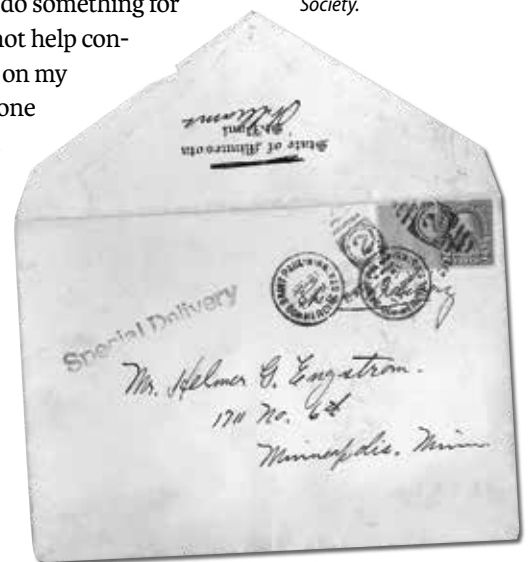 do something for
not help con-
on my
one
Society.
Williams
State of Minnesota
Special Delivery
Mr. Helmer G. Engstrom.
1711 No. 6th
Minneapolis, Minn.